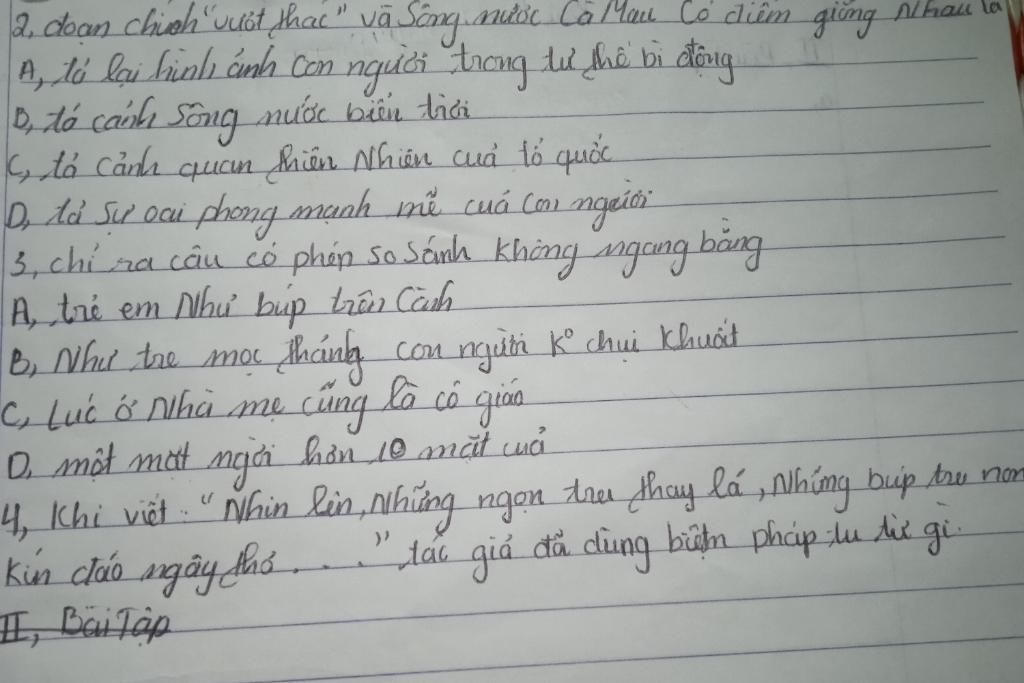 2, đoạn chích "vượt thác" và Sông nước Cà Mau Có điểm giống Nhau là
A, tả lại hình ảnh con người trong tư thế bị động
B, tả cảnh sông nước biển trời
C, tả cảnh quan thiên Nhiên cuả tổ quốc
D, tả sự oai phong mạnh mẽ cuả con người
3, chỉ ra câu có phép so sánh không ngang bằng
A, trẻ em Như búp trên Cành
B, Như tre mọc thẳng con người k° chịu khuất
C, Lúc ở Nhà mẹ cũng là cô giáo
D, một mặt ngời hơn 10 mặt cuả
4, Khi viết: "Nhìn lên, Những ngọn tre thay lá, Những búp tre non
Kín đáo ngây thơ . . . ." tác giả đã dùng biện pháp tu từ gì.
II, Bài Tập